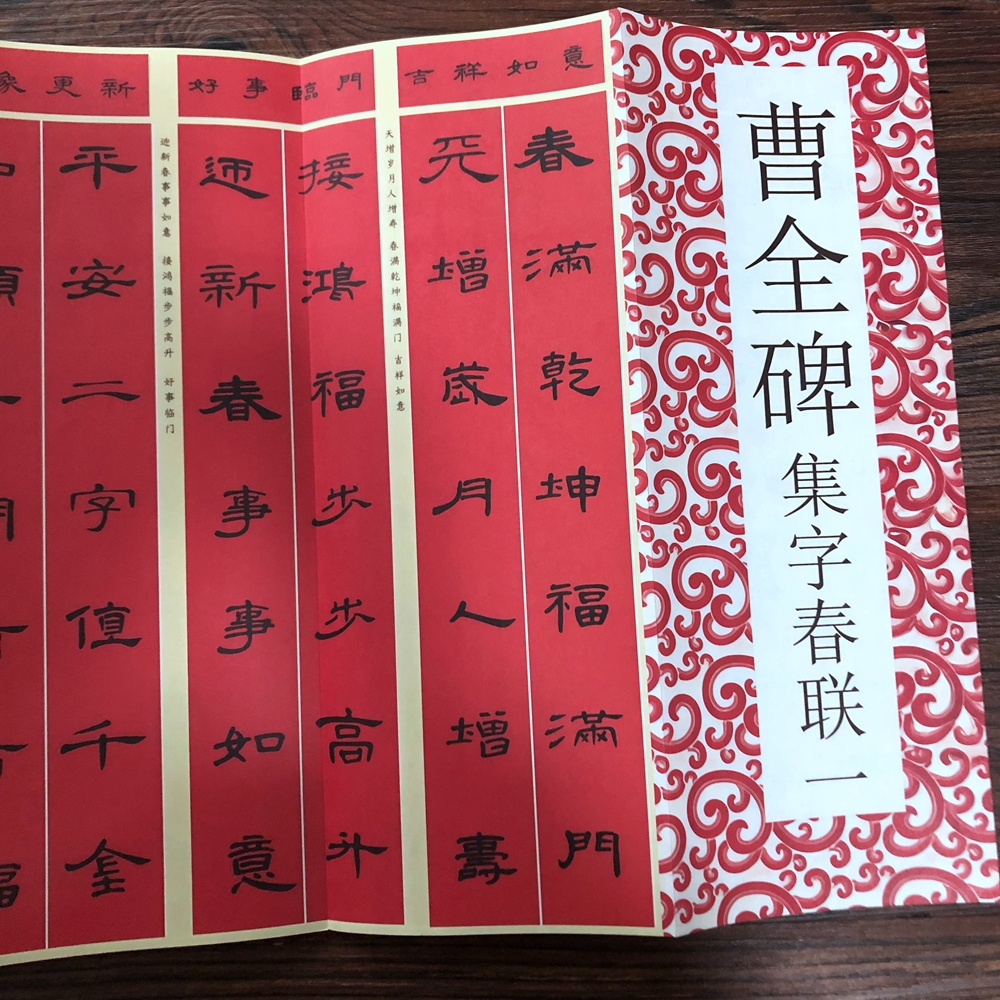 曹全碑 集字春联 一
吉祥如意
春滿乾坤福滿門
天增歲月人增壽
天增岁月人增寿 春满乾坤福满门 吉祥如意
好事臨門
接鴻福步步高升
迎新春事事如意
迎新春事事如意 接鸿福步步高升 好事临门
象更新
平安二字值千金